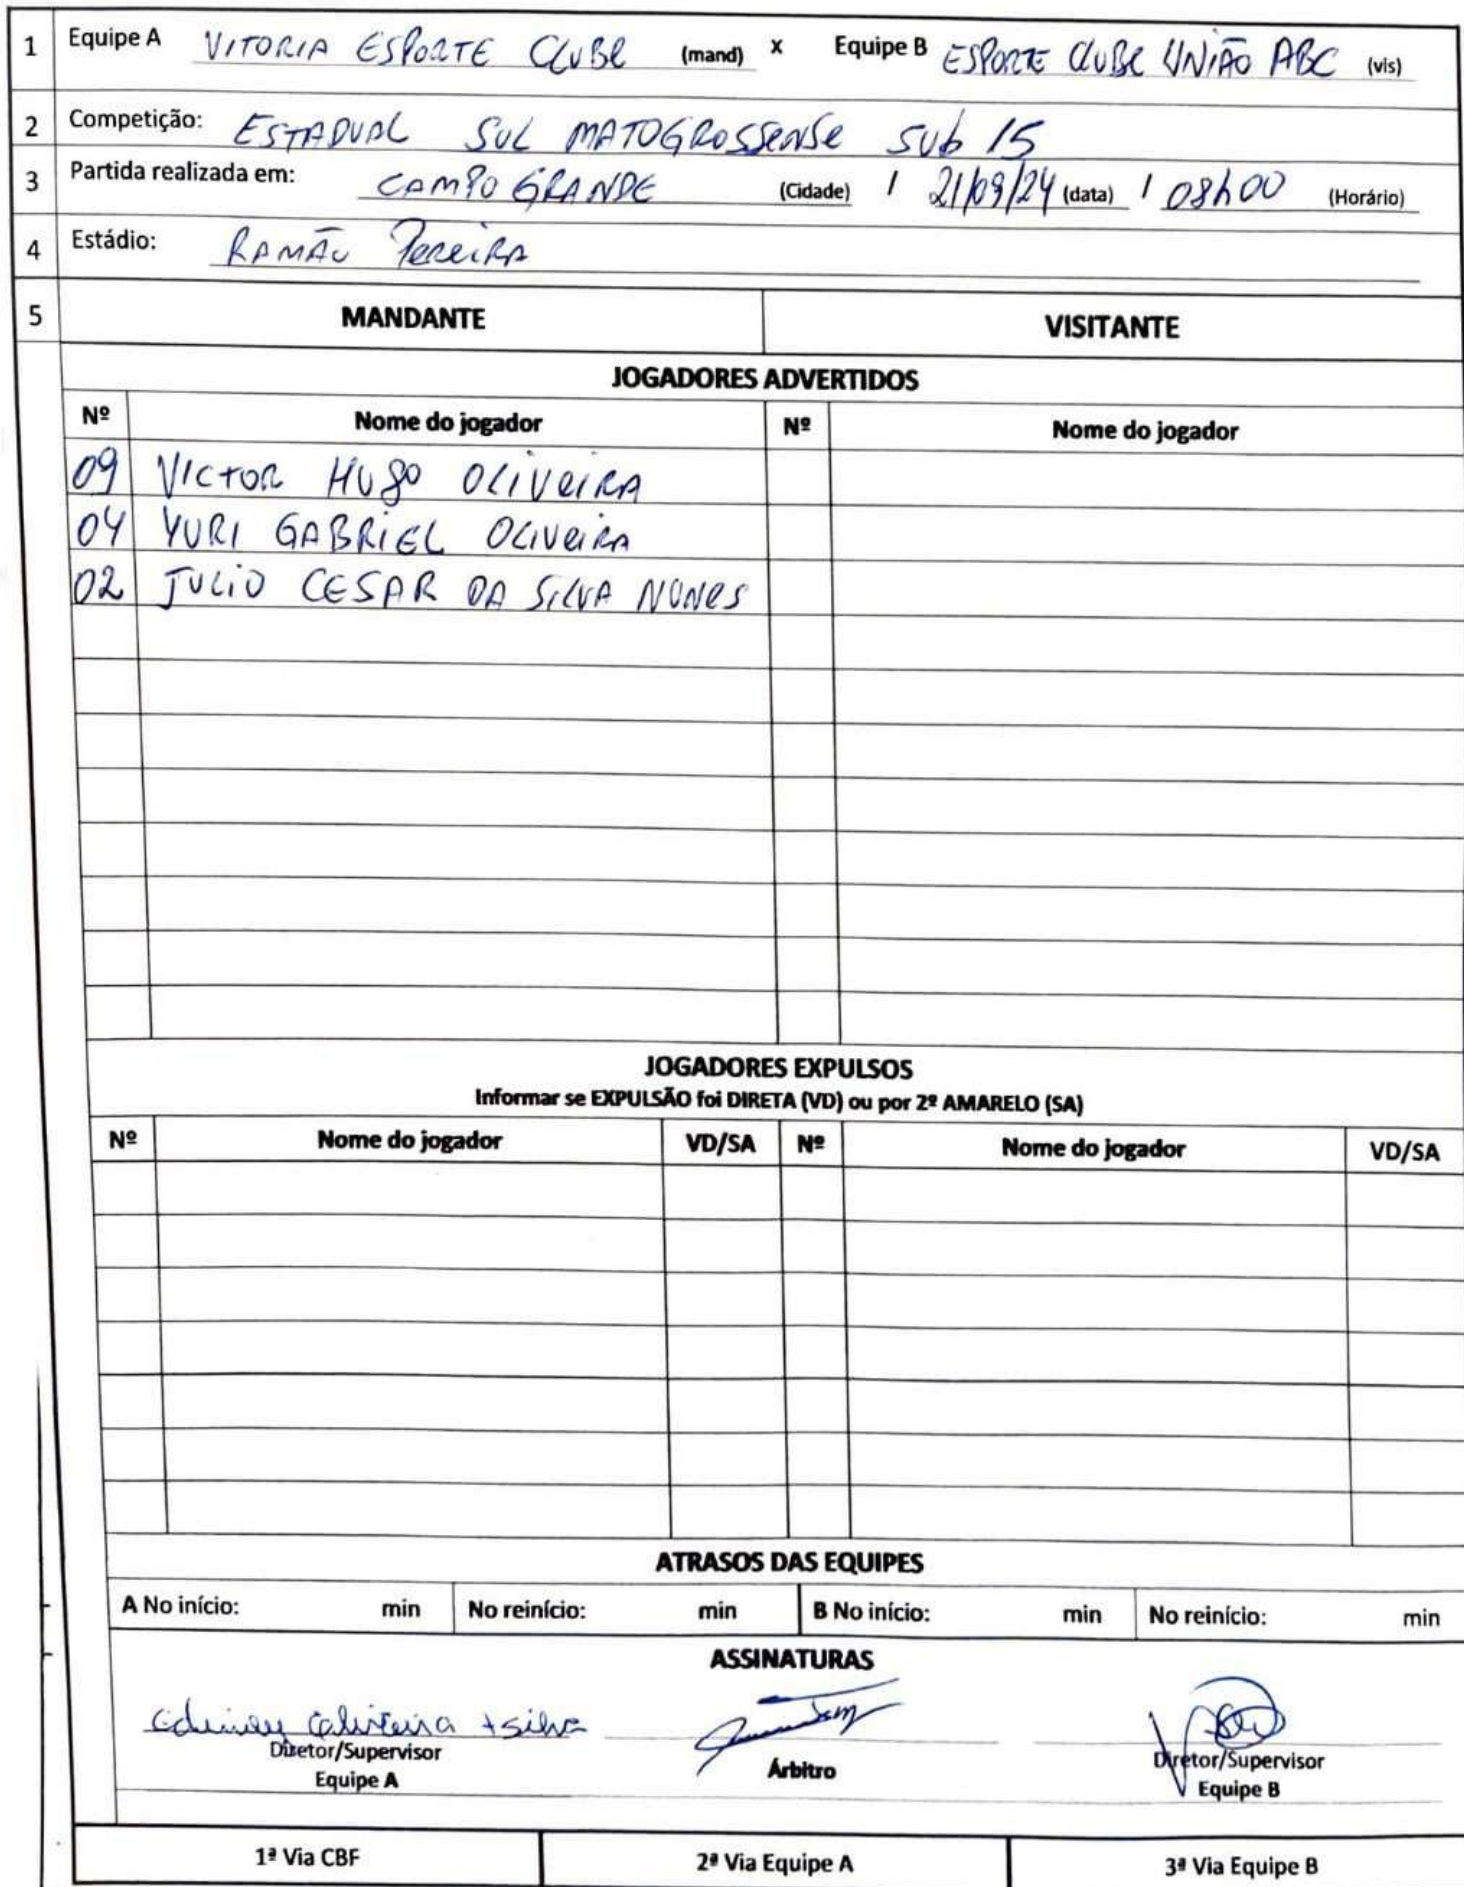 1 Equipe A VITORIA ESPORTE CLUBE (mand) x Equipe B ESPORTE CLUBE UNIÃO ABC (vis)
2 Competição: ESTADUAL SUL MATOGROSSENSE SUB 15
3 Partida realizada em: CAMPO GRANDE (Cidade) / 21/09/24 (data) / 08h00 (Horário)
4 Estádio: RAMÃO PEREIRA
5 MANDANTE VISITANTE
JOGADORES ADVERTIDOS
Nº Nome do jogador Nº Nome do jogador
09 VICTOR HUGO OLIVEIRA
04 YURI GABRIEL OLIVEIRA
02 JULIO CESAR DA SILVA NUNES
JOGADORES EXPULSOS
Informar se EXPULSÃO foi DIRETA (VD) ou por 2º AMARELO (SA)
Nº Nome do jogador VD/SA Nº Nome do jogador VD/SA
ATRASOS DAS EQUIPES
A No início: min No reinício: min B No início: min No reinício: min
ASSINATURAS
silva
Diretor/Supervisor Árbitro Diretor/Supervisor
Equipe A Equipe B
1ª Via CBF 2ª Via Equipe A 3ª Via Equipe B